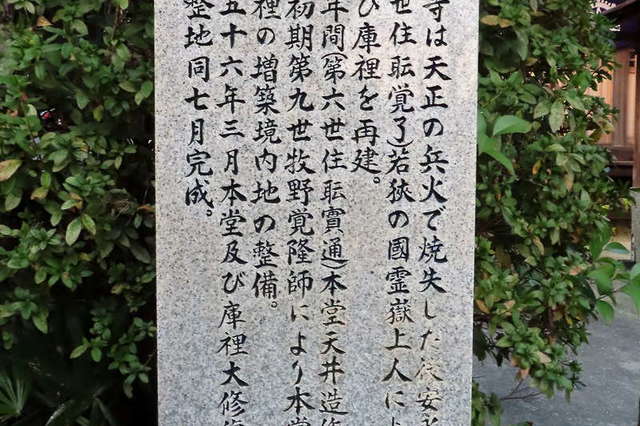 寺は天正の兵火で焼失した後安永
世住職覚了若狭の國霊嶽上人によ
び庫裡を再建。
年間第六世住職實通本堂天井造作
初期第九世牧野覚隆師により本堂
裡の増築境内地の整備。
五十六年三月本堂及び庫裡大修復
整地同七月完成。